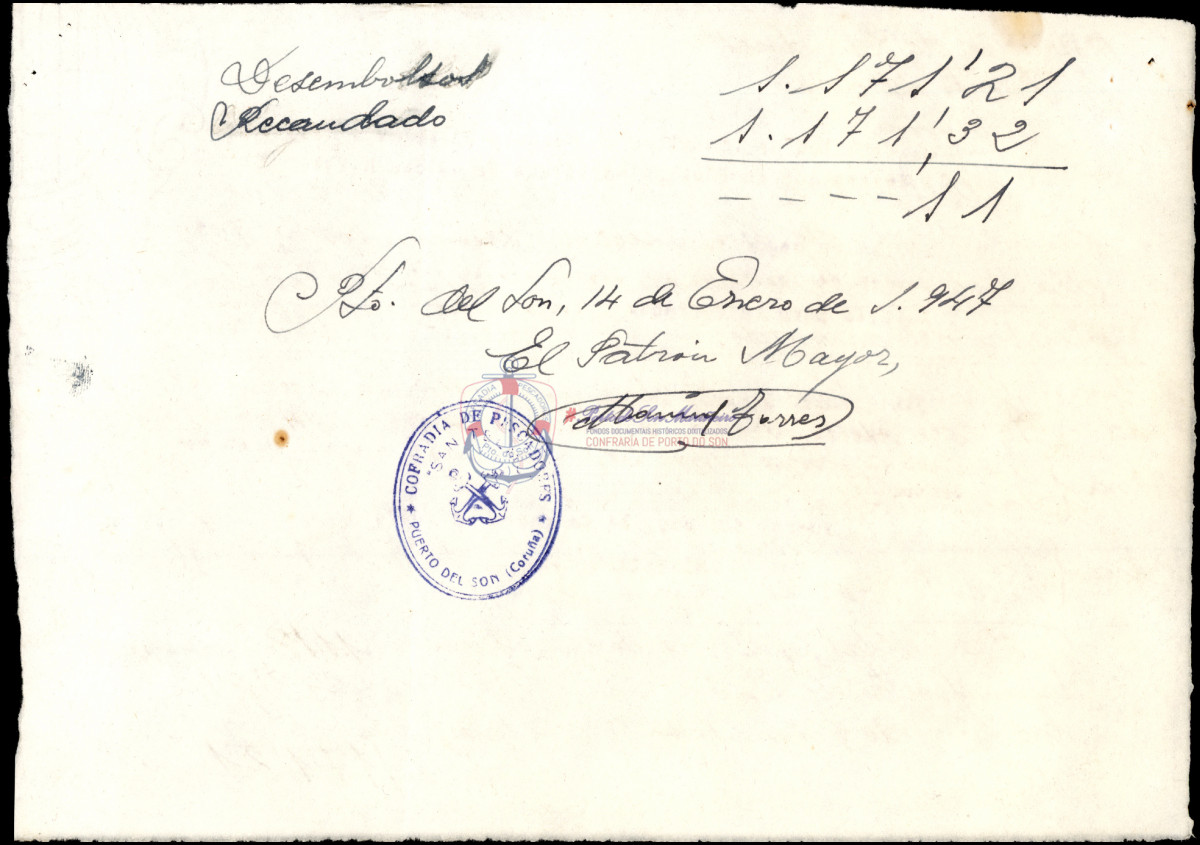 Desembolsos 1.171'21
Recaudado 1.171'32
- - - - '11
Pto. del Son, 14 de Enero de 1.947
El Patrón Mayor,
Manuel Torres
COFRADIA DE PESCADORES
"SAN
PUERTO DEL SON (Coruña)
FONDOS DOCUMENTAIS HISTÓRICOS DIXITALIZADOS
CONFRARÍA DE PORTO DO SON